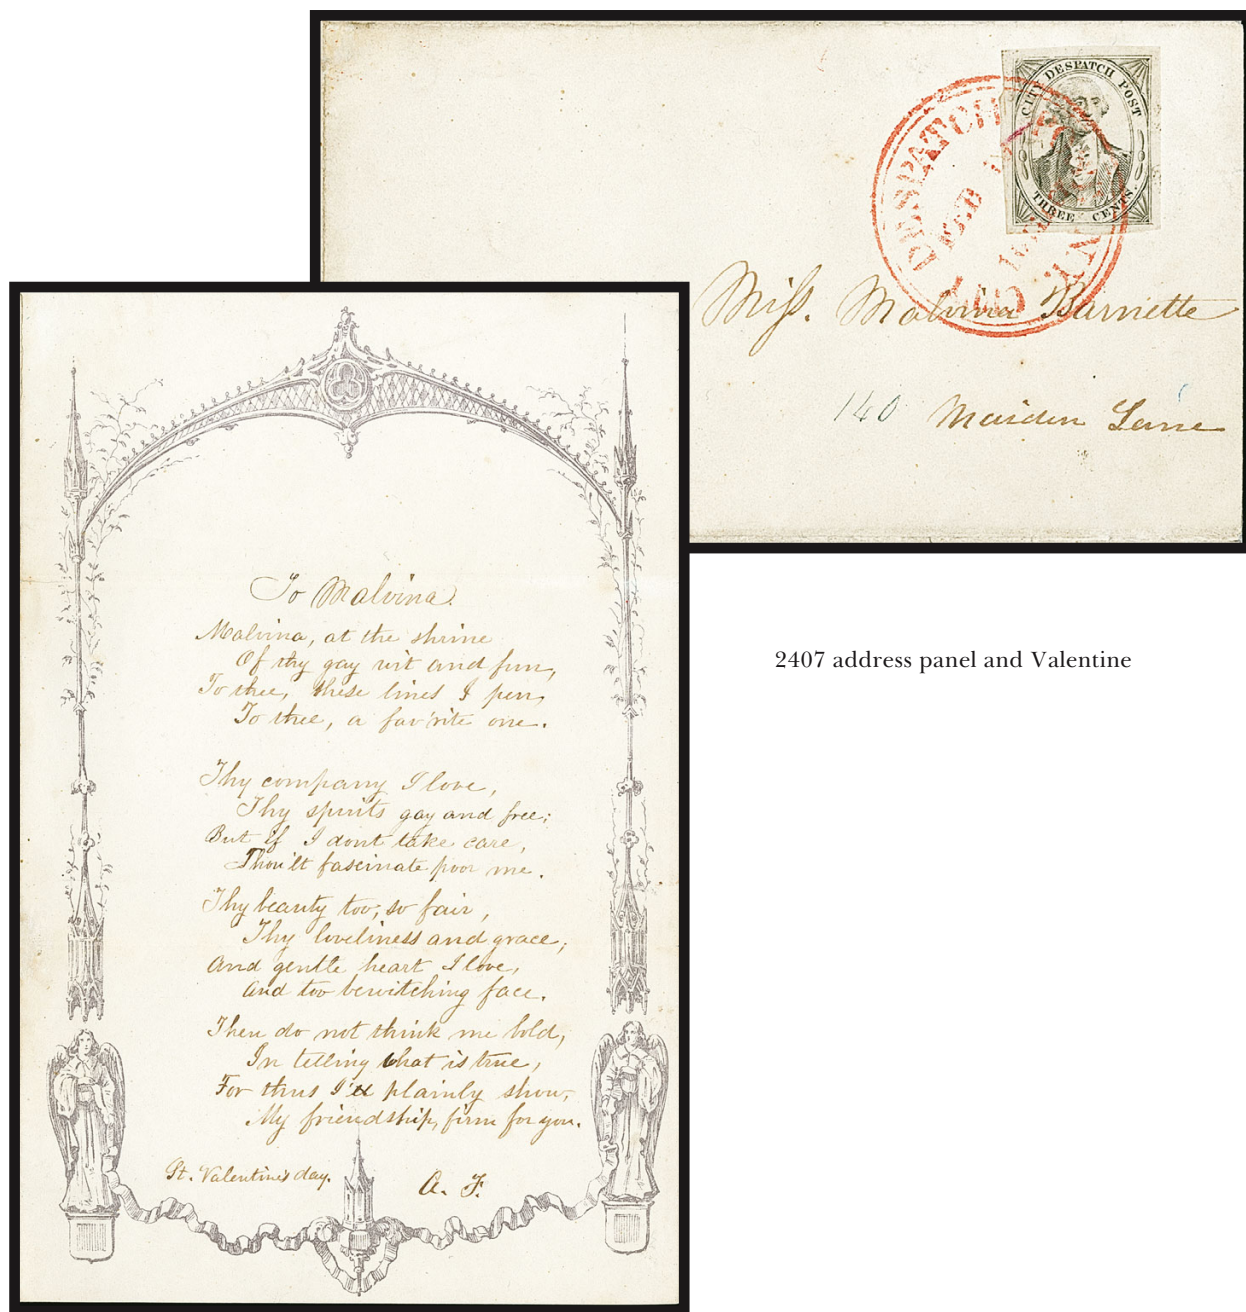 CITY DESPATCH POST
THREE CENTS.
CITY DESPATCH N.Y.
FEB
Miss. Malvina Burnette
140 Maiden Lane
To Malvina.
Malvina, at the shrine
Of thy gay wit and fun,
To thee, these lines I pen,
To thee, a fav'rite one.
Thy company I love,
Thy spirits gay and free;
But if I dont take care,
Thou'lt fascinate poor me.
Thy beauty too, so fair,
Thy loveliness and grace,
And gentle heart I love,
And too bewitching face.
Then do not think me bold,
In telling what is true,
For thus I'll plainly show,
My friendship, firm for you.
St. Valentine's day.
A. F.
2407 address panel and Valentine